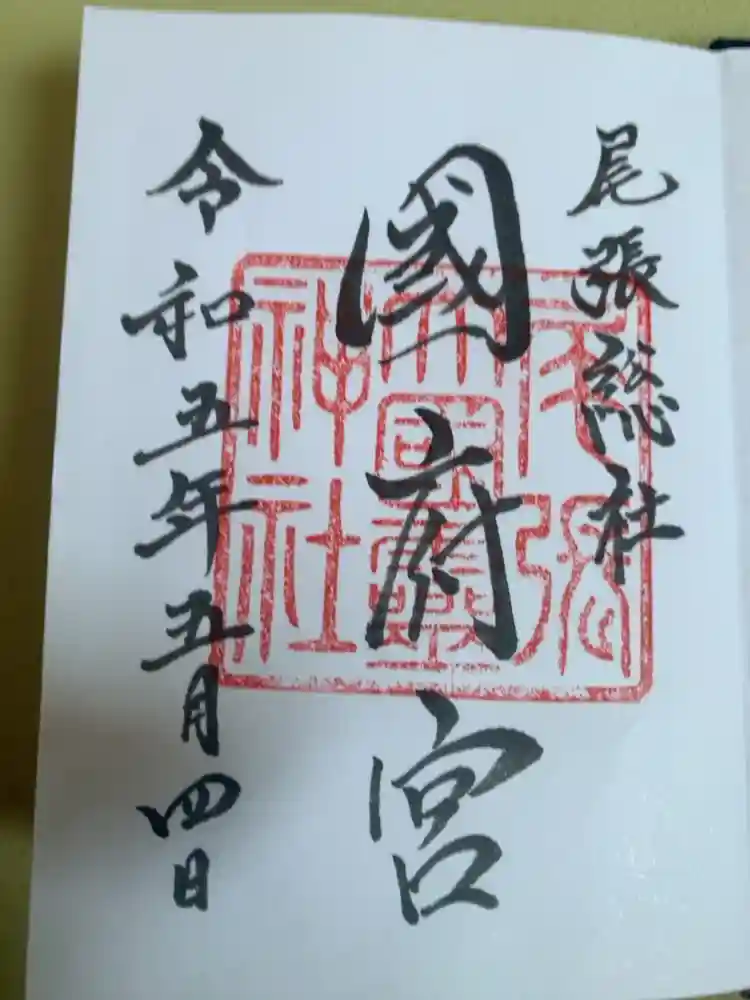 尾張総社
國府宮
令和五年五月四日
尾張
大國霊
神社